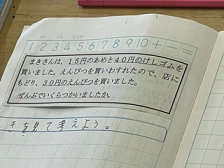 1 2 3 4 5 6 7 8 9 10 + ー
まきさんは、15円のあめと40円のけしゴムを
買いました。えんぴつを買いわすれたので、店に
もどり、30円のえんぴつを買いました。
ぜんぶでいくらつかいましたか。
を見て考えよう。